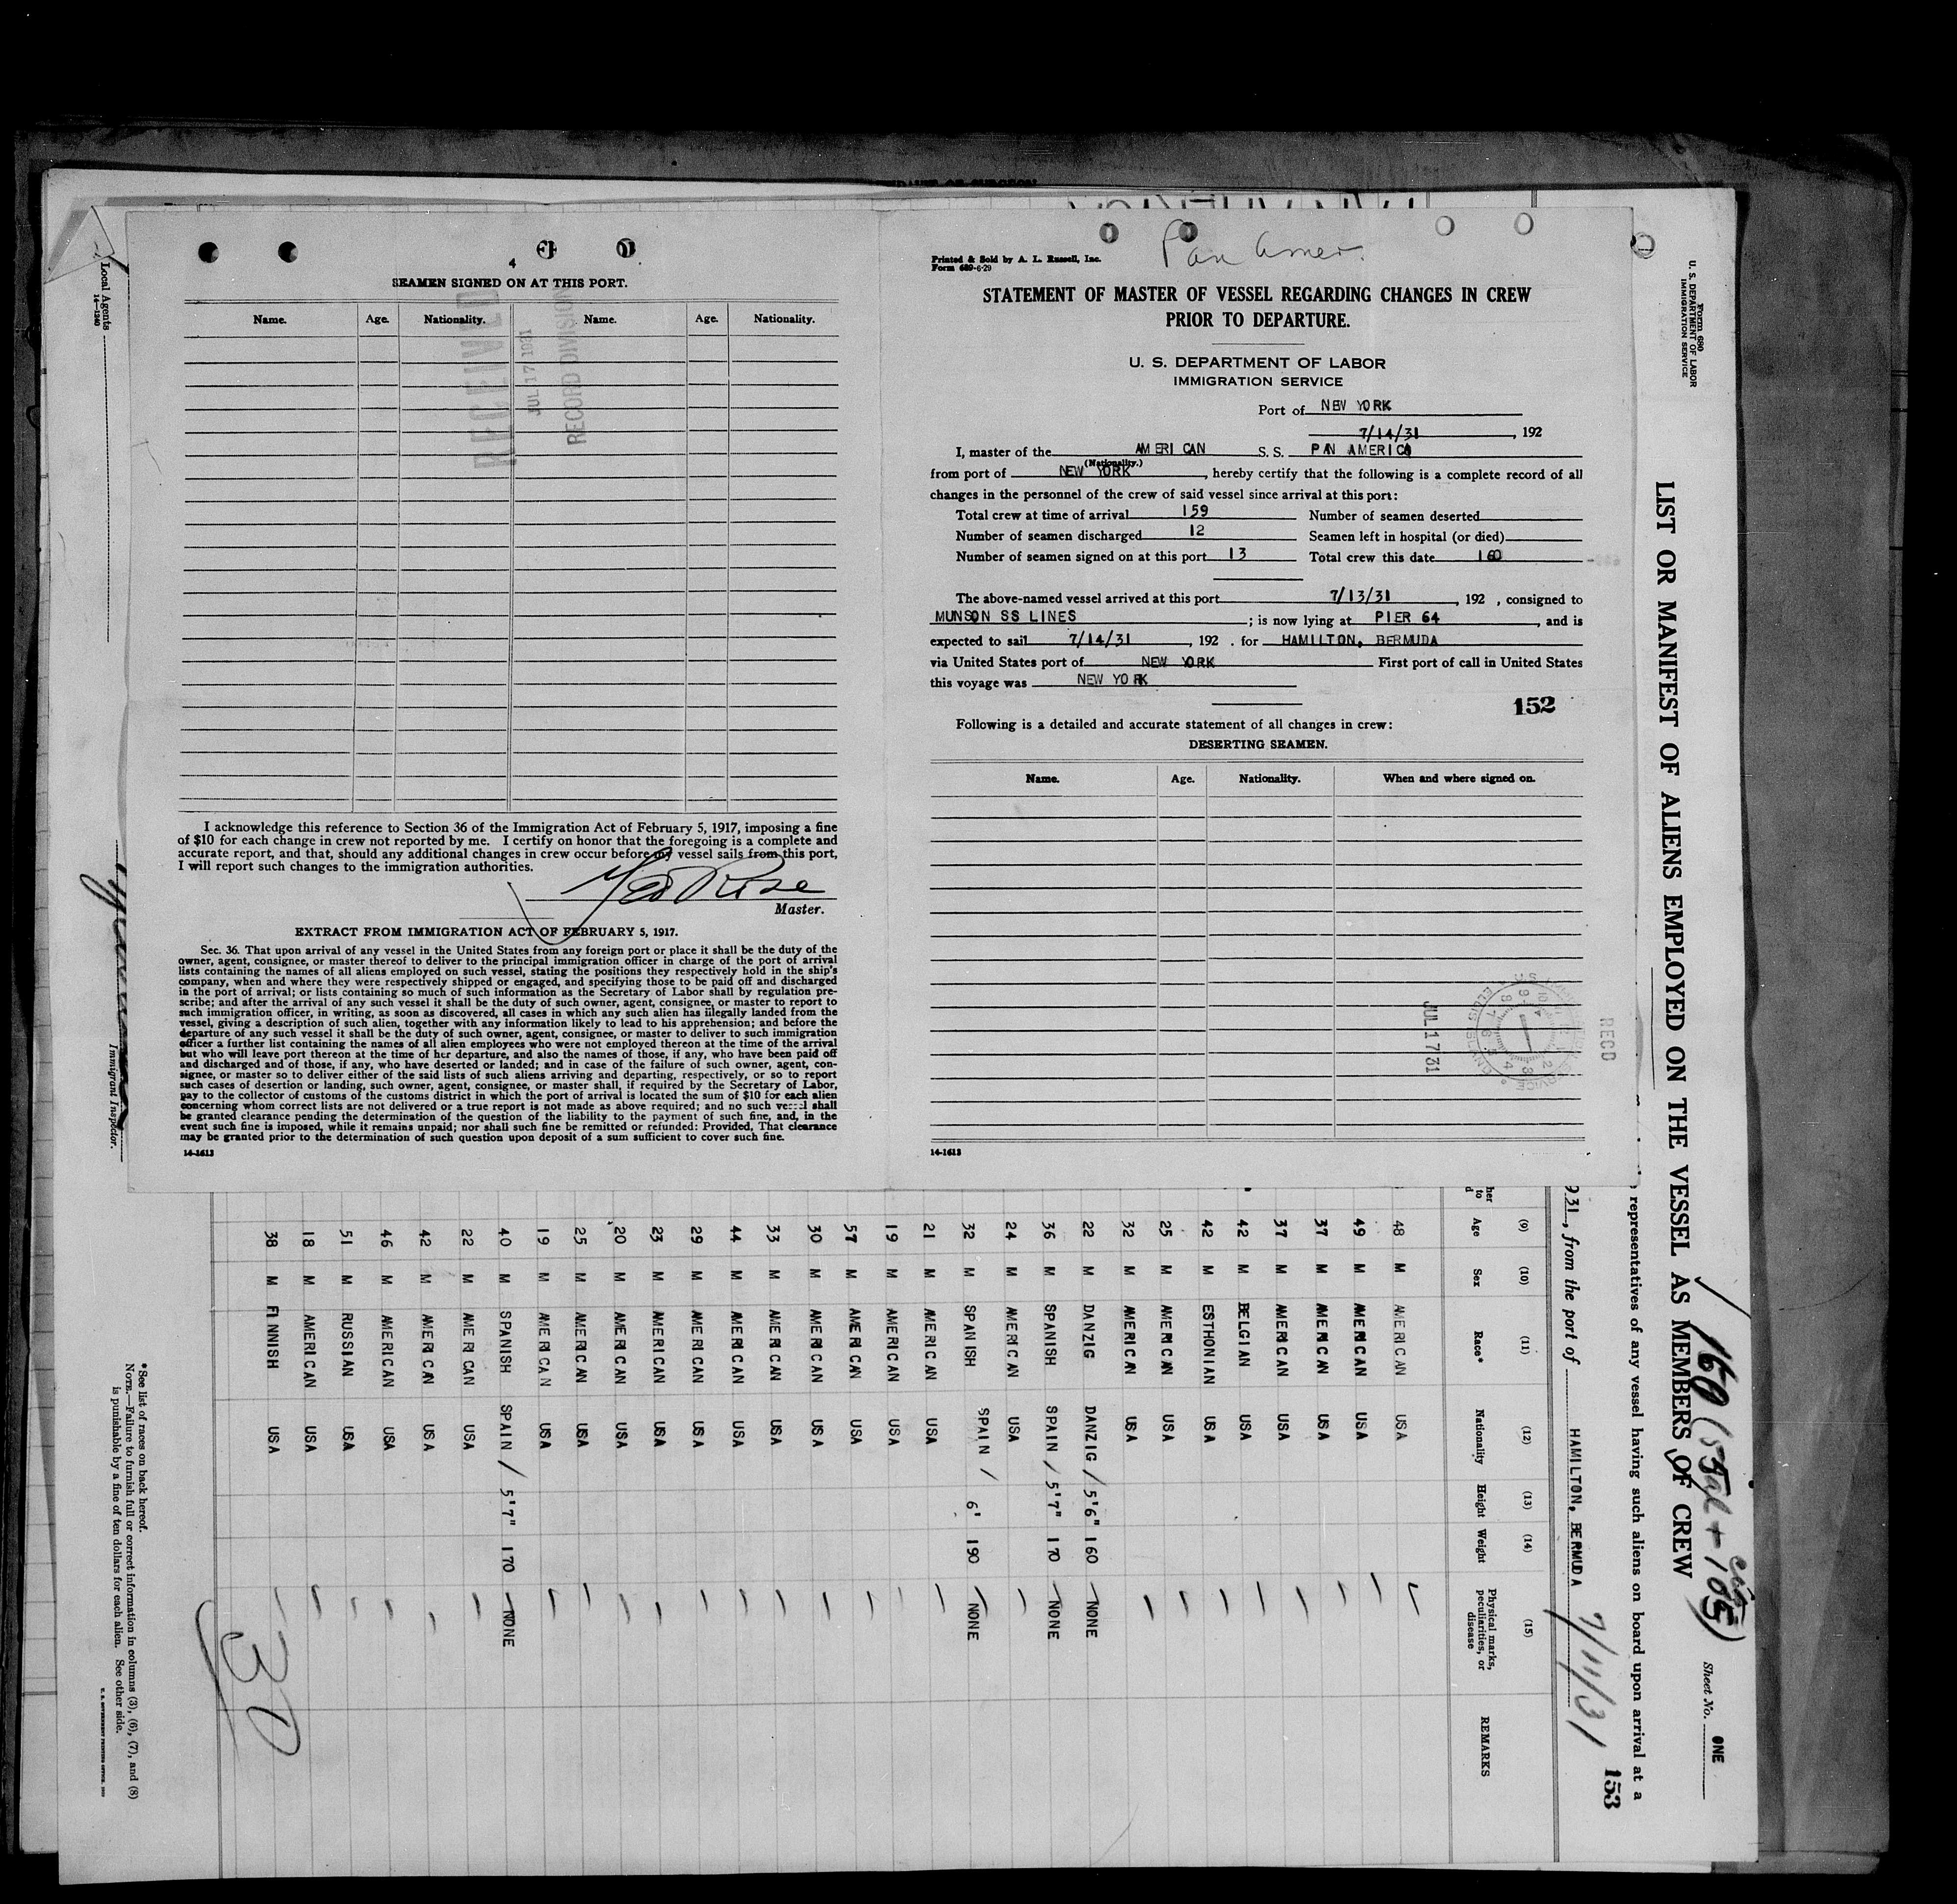 4
SEAMEN SIGNED ON AT THIS PORT.
Name. Age. Nationality. Name. Age. Nationality.
RECEIVED
JUL 17 1931
RECORD DIVISION
I acknowledge this reference to Section 36 of the Immigration Act of February 5, 1917, imposing a fine
of $10 for each change in crew not reported by me. I certify on honor that the foregoing is a complete and
accurate report, and that, should any additional changes in crew occur before my vessel sails from this port,
I will report such changes to the immigration authorities.
Master.
EXTRACT FROM IMMIGRATION ACT OF FEBRUARY 5, 1917.
Sec. 36. That upon arrival of any vessel in the United States from any foreign port or place it shall be the duty of the
owner, agent, consignee, or master thereof to deliver to the principal immigration officer in charge of the port of arrival
lists containing the names of all aliens employed on such vessel, stating the positions they respectively hold in the ship's
company, when and where they were respectively shipped or engaged, and specifying those to be paid off and discharged
in the port of arrival; or lists containing so much of such information as the Secretary of Labor shall by regulation pre-
scribe; and after the arrival of any such vessel it shall be the duty of such owner, agent, consignee, or master to report to
such immigration officer, in writing, as soon as discovered, all cases in which any such alien has illegally landed from the
vessel, giving a description of such alien, together with any information likely to lead to his apprehension; and before the
departure of any such vessel it shall be the duty of such owner, agent, consignee, or master to deliver to such immigration
officer a further list containing the names of all alien employees who were not employed thereon at the time of the arrival
but who will leave port thereon at the time of her departure, and also the names of those, if any, who have been paid off
and discharged and of those, if any, who have deserted or landed; and in case of the failure of such owner, agent, con-
signee, or master so to deliver either of the said lists of such aliens arriving and departing, respectively, or so to report
such cases of desertion or landing, such owner, agent, consignee, or master shall, if required by the Secretary of Labor,
pay to the collector of customs of the customs district in which the port of arrival is located the sum of $10 for each alien
concerning whom correct lists are not delivered or a true report is not made as above required; and no such vessel shall
be granted clearance pending the determination of the question of the liability to the payment of such fine, and, in the
event such fine is imposed, while it remains unpaid; nor shall such fine be remitted or refunded: Provided, That clearance
may be granted prior to the determination of such question upon deposit of a sum sufficient to cover such fine.
14-1613
Pan Amer.
Printed & Sold by A. L. Russell, Inc.
Form 689-6-29
STATEMENT OF MASTER OF VESSEL REGARDING CHANGES IN CREW
PRIOR TO DEPARTURE.
U. S. DEPARTMENT OF LABOR
IMMIGRATION SERVICE
Port of NEW YORK
7/14/31, 192
I, master of the AMERICAN S. S. PAN AMERICA
(Nationality.)
from port of NEW YORK, hereby certify that the following is a complete record of all
changes in the personnel of the crew of said vessel since arrival at this port:
Total crew at time of arrival 159 Number of seamen deserted
Number of seamen discharged 12 Seamen left in hospital (or died)
Number of seamen signed on at this port 13 Total crew this date 160
The above-named vessel arrived at this port 7/13/31, 192 , consigned to
MUNSON SS LINES; is now lying at PIER 64, and is
expected to sail 7/14/31, 192 . for HAMILTON, BERMUDA
via United States port of NEW YORK First port of call in United States
this voyage was NEW YORK
152
Following is a detailed and accurate statement of all changes in crew:
DESERTING SEAMEN.
Name. Age. Nationality. When and where signed on.
JUL 17 31
RECD
14-1613
Local Agents
14-1240
Immigrant Inspector.
Form 680
U. S. DEPARTMENT OF LABOR
IMMIGRATION SERVICE
LIST OR MANIFEST OF ALIENS EMPLOYED ON THE VESSEL AS MEMBERS OF CREW
160
Sheet No. ONE
representatives of any vessel having such aliens on board upon arrival at a
31, from the port of HAMILTON, BERMUDA 7/11/31
153
(9) (10) (11) (12) (13) (14) (15)
Age Sex Race* Nationality Height Weight Physical marks, peculiarities, or disease REMARKS
48 M AMERICAN USA
49 M AMERICAN USA
37 M AMERICAN USA
37 M AMERICAN USA
42 M BELGIAN USA
42 M ESTHONIAN USA
25 M AMERICAN USA
32 M AMERICAN USA
22 M DANZIG DANZIG / 5'6" 160 NONE
36 M SPANISH SPAIN / 5'7" 170 NONE
24 M AMERICAN USA
32 M SPANISH SPAIN / 6' 190 NONE
21 M AMERICAN USA
19 M AMERICAN USA
57 M AMERICAN USA
30 M AMERICAN USA
33 M AMERICAN USA
44 M AMERICAN USA
29 M AMERICAN USA
23 M AMERICAN USA
20 M AMERICAN USA
25 M AMERICAN USA
19 M AMERICAN USA
40 M SPANISH SPAIN / 5'7" 170 NONE
22 M AMERICAN USA
42 M AMERICAN USA
46 M AMERICAN USA
51 M RUSSIAN USA
18 M AMERICAN USA
38 M FINNISH USA
30
*See list of races on back hereof.
NOTE.—Failure to furnish full or correct information in columns (3), (6), (7), and (8)
is punishable by a fine of ten dollars for each alien. See other side.